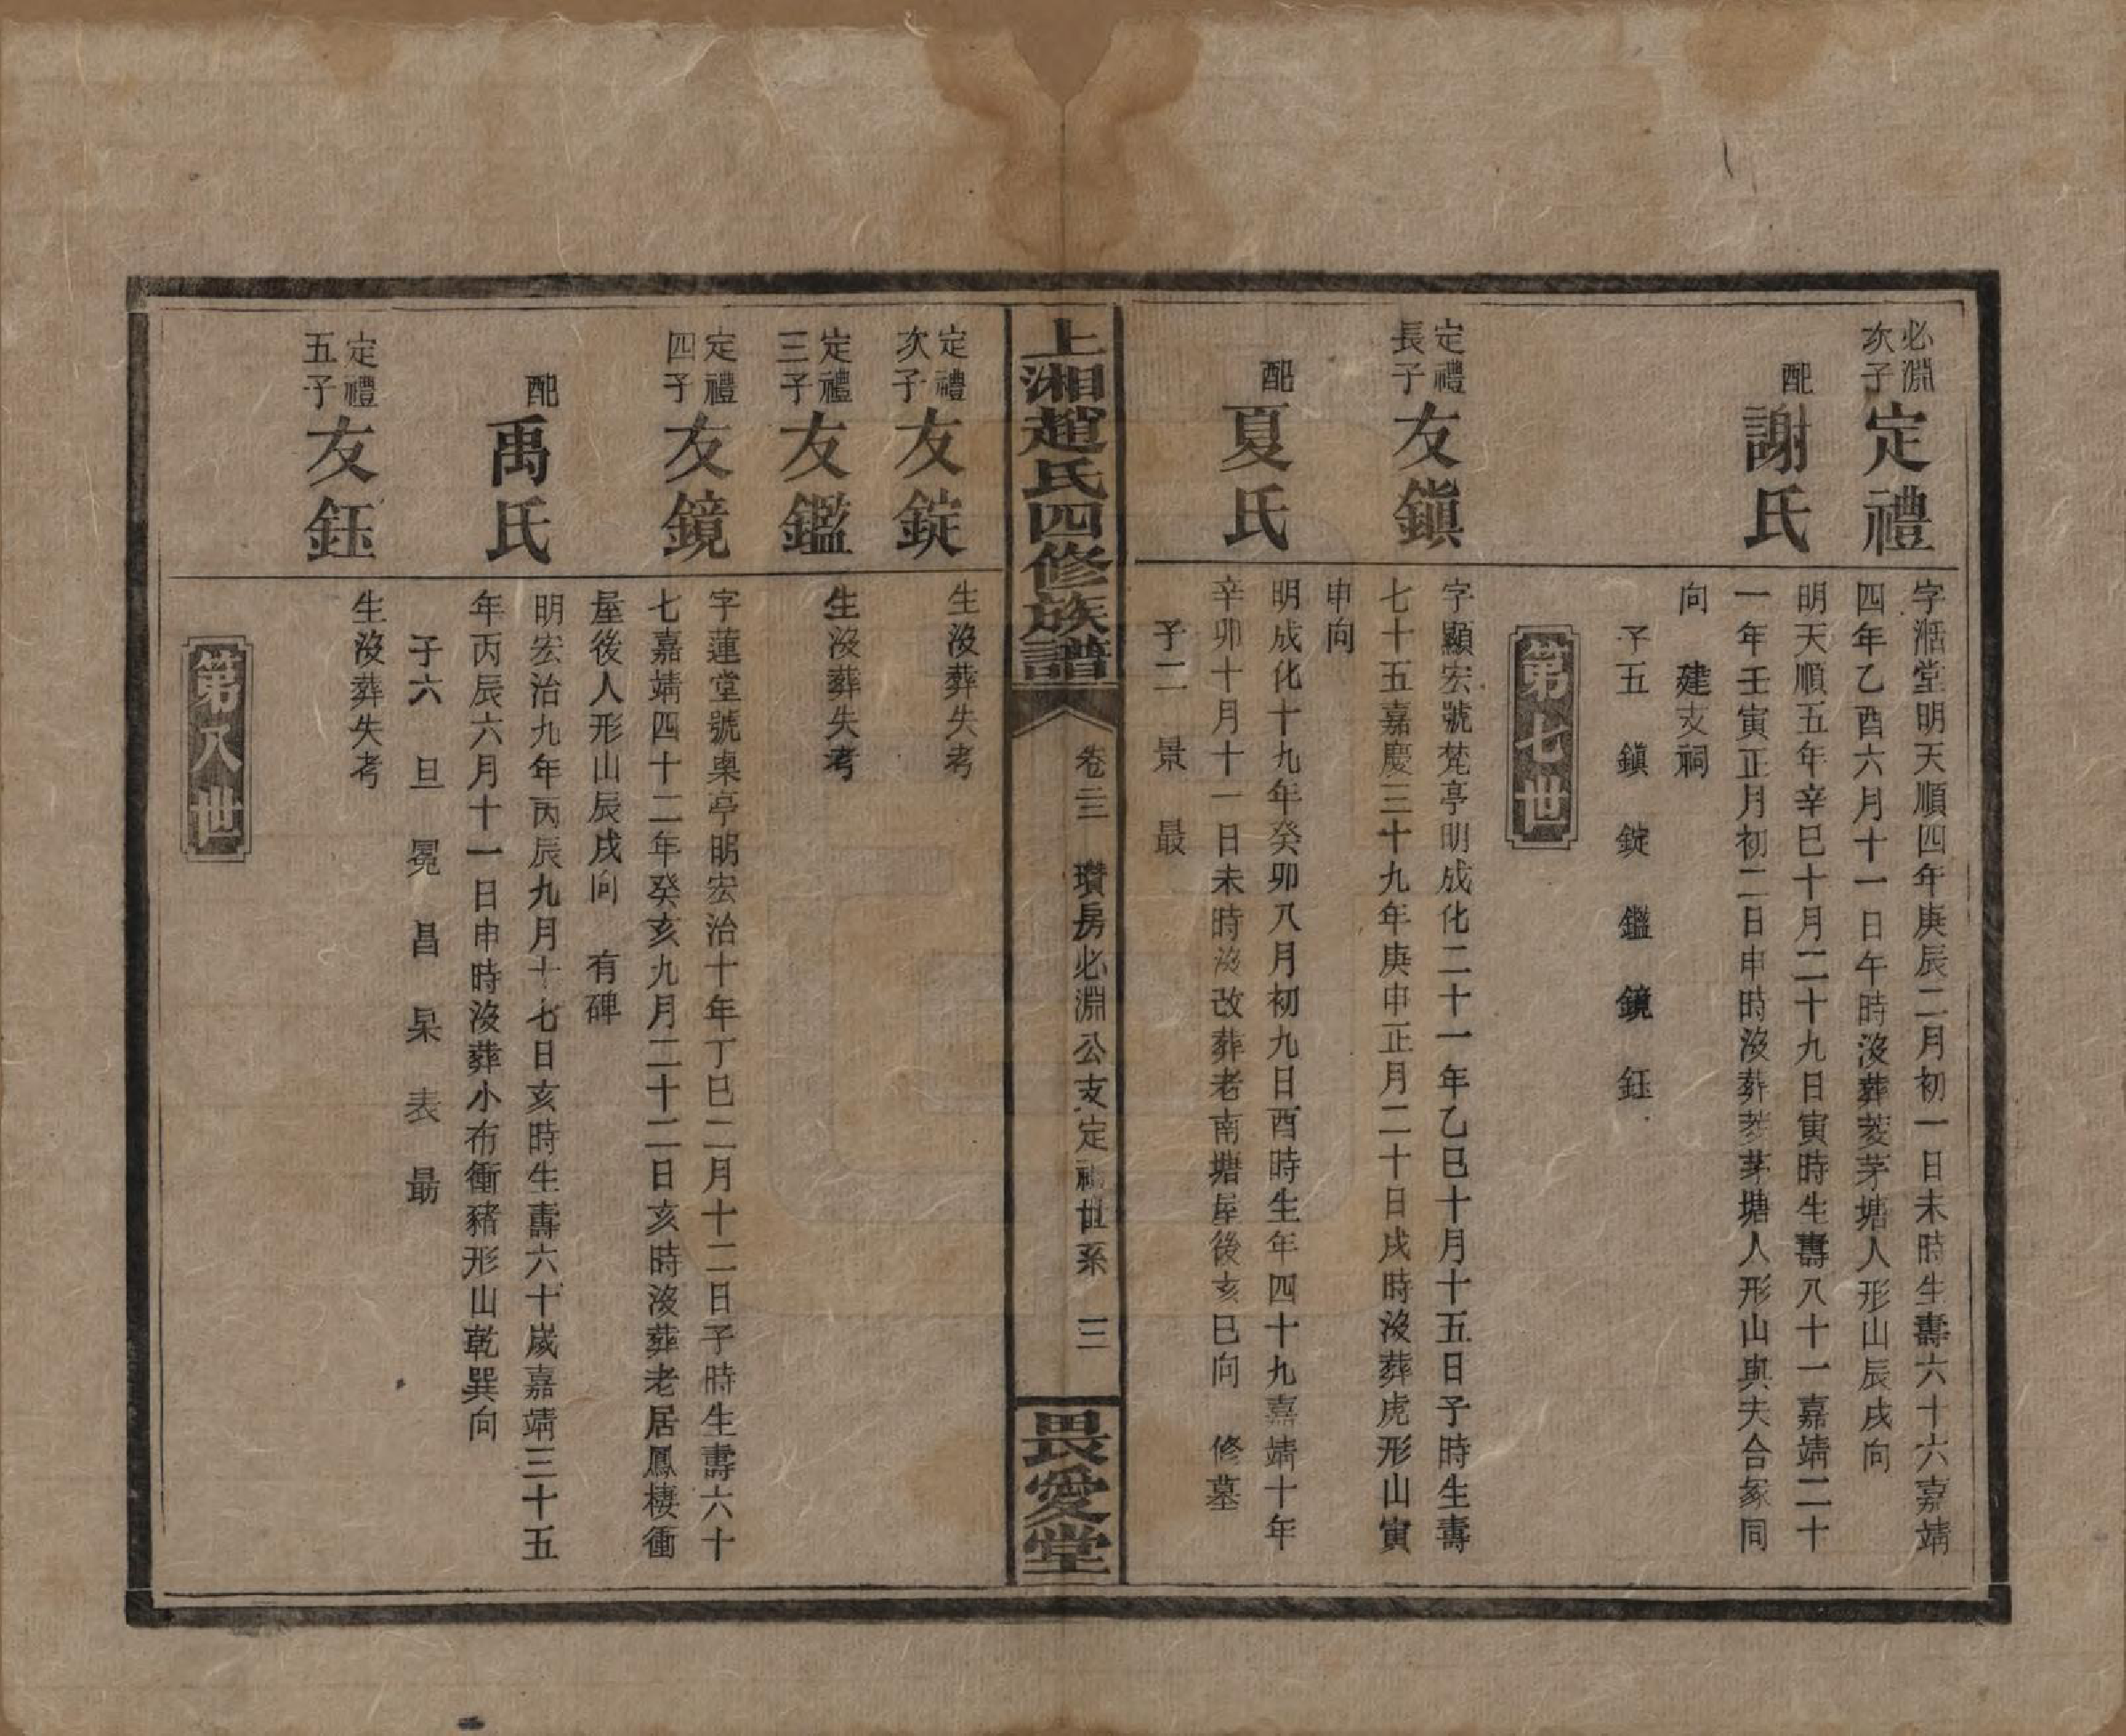 必淵
次子
定禮
字湉堂明天順四年庚辰二月初一日未時生壽六十六嘉靖
四年乙酉六月十一日午時沒葬菱茅塘人形山辰戌向
配
謝氏
明天順五年辛巳十月二十九日寅時生壽八十一嘉靖二十
一年壬寅正月初二日申時沒葬菱茅塘人形山與夫合冢同
向 建支祠
子五 鎮 錠 鑑 鏡 鈺
第七世
定禮
長子
友鎮
字顯宏號梵亭明成化二十一年乙巳十月十五日子時生壽
七十五嘉慶三十九年庚申正月二十日戌時沒葬虎形山寅
申向
配
夏氏
明成化十九年癸卯八月初九日酉時生年四十九嘉靖十年
辛卯十月十一日未時沒改葬老南塘屋後亥巳向 修墓
子二 景 最
上湘趙氏四修族譜
卷三 瓚房必淵公支定禮世系 三
畏愛堂
定禮
次子
友錠
生沒葬失考
定禮
三子
友鑑
生沒葬失考
定禮
四子
友鏡
字蓮堂號臬亭明宏治十年丁巳二月十二日子時生壽六十
七嘉靖四十二年癸亥九月二十二日亥時沒葬老居鳳棲衝
屋後人形山辰戌向 有碑
配
禹氏
明宏治九年丙辰九月十七日亥時生壽六十歲嘉靖三十五
年丙辰六月十一日申時沒葬小布衝豬形山乾巽向
子六 旦 冕 昌 杲 表 勗
定禮
五子
友鈺
生沒葬失考
第八世